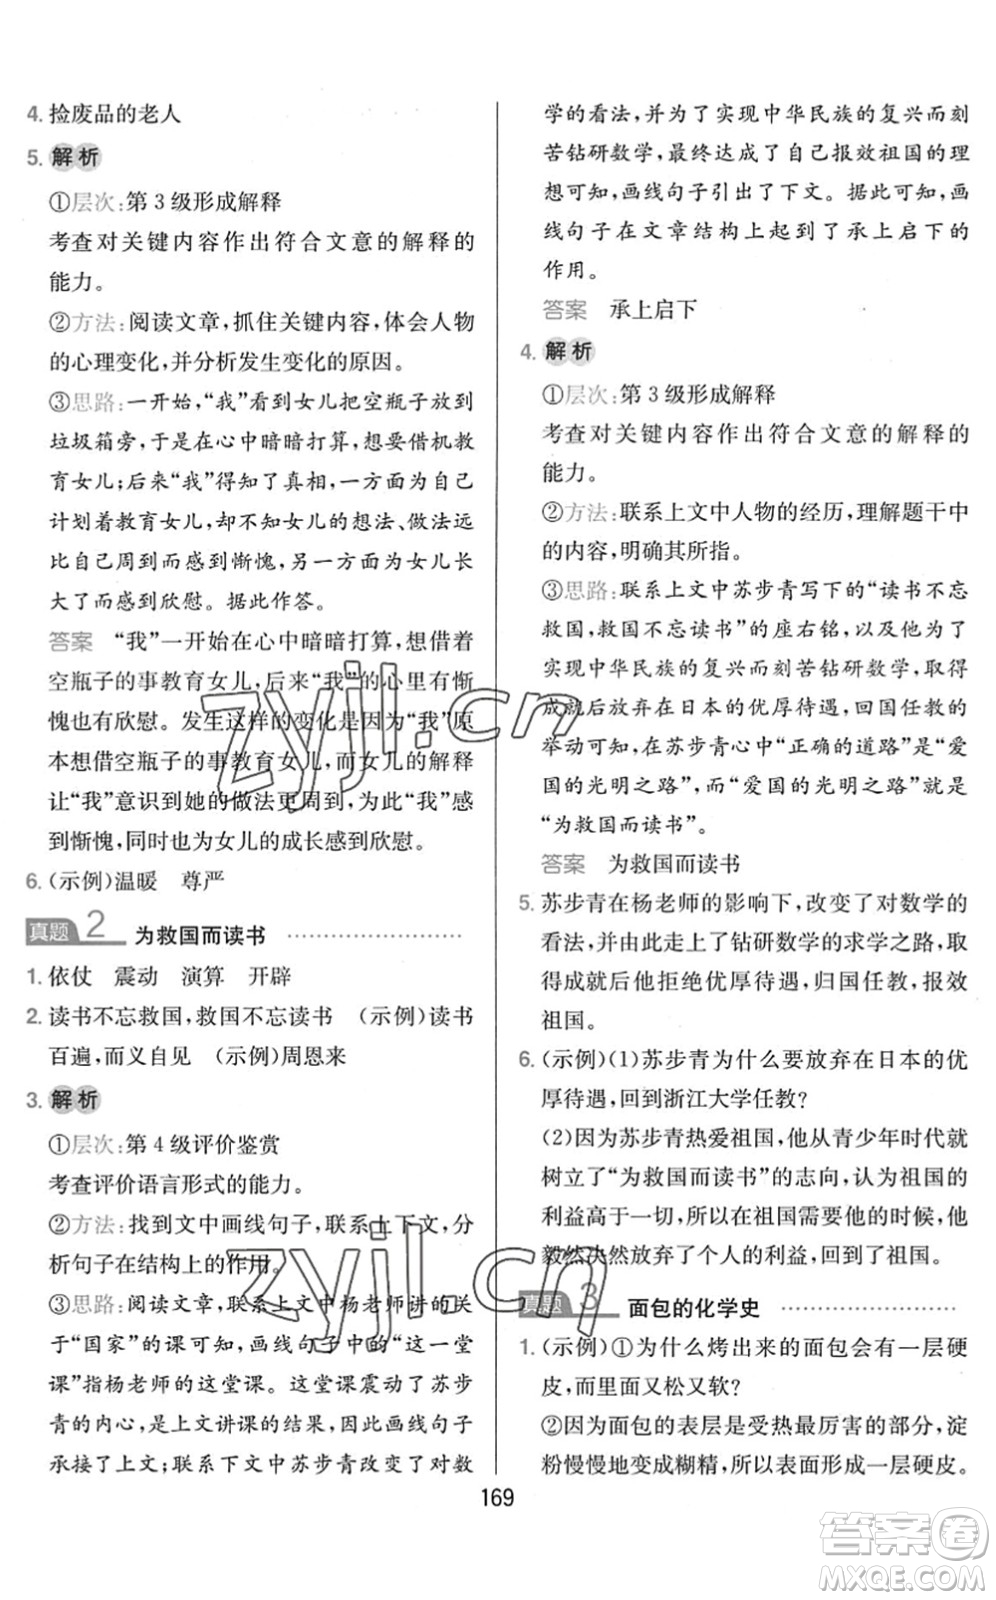 4. 捡废品的老人
5. 解析
①层次:第3级形成解释
考查对关键内容作出符合文意的解释的
能力。
②方法:阅读文章,抓住关键内容,体会人物
的心理变化,并分析发生变化的原因。
③思路:一开始,“我”看到女儿把空瓶子放到
垃圾箱旁,于是在心中暗暗打算,想要借机教
育女儿;后来“我”得知了真相,一方面为自己
计划着教育女儿,却不知女儿的想法、做法远
比自己周到而感到惭愧,另一方面为女儿长
大了而感到欣慰。据此作答。
答案 “我”一开始在心中暗暗打算,想借着
空瓶子的事教育女儿,后来“我”的心里有惭
愧也有欣慰。发生这样的变化是因为“我”原
本想借空瓶子的事教育女儿,而女儿的解释
让“我”意识到她的做法更周到,为此“我”感
到惭愧,同时也为女儿的成长感到欣慰。
6. (示例)温暖 尊严
真题2 为救国而读书
1. 依仗 震动 演算 开辟
2. 读书不忘救国,救国不忘读书 (示例)读书
百遍,而义自见 (示例)周恩来
3. 解析
①层次:第4级评价鉴赏
考查评价语言形式的能力。
②方法:找到文中画线句子,联系上下文,分
析句子在结构上的作用。
③思路:阅读文章,联系上文中杨老师讲的关
于“国家”的课可知,画线句子中的“这一堂
课”指杨老师的这堂课。这堂课震动了苏步
青的内心,是上文讲课的结果,因此画线句子
承接了上文;联系下文中苏步青改变了对数
学的看法,并为了实现中华民族的复兴而刻
苦钻研数学,最终达成了自己报效祖国的理
想可知,画线句子引出了下文。据此可知,画
线句子在文章结构上起到了承上启下的
作用。
答案 承上启下
4. 解析
①层次:第3级形成解释
考查对关键内容作出符合文意的解释的
能力。
②方法:联系上文中人物的经历,理解题干中
的内容,明确其所指。
③思路:联系上文中苏步青写下的“读书不忘
救国,救国不忘读书”的座右铭,以及他为了
实现中华民族的复兴而刻苦钻研数学,取得
成就后放弃在日本的优厚待遇,回国任教的
举动可知,在苏步青心中“正确的道路”是“爱
国的光明之路”,而“爱国的光明之路”就是
“为救国而读书”。
答案 为救国而读书
5. 苏步青在杨老师的影响下,改变了对数学的
看法,并由此走上了钻研数学的求学之路,取
得成就后他拒绝优厚待遇,归国任教,报效
祖国。
6. (示例)(1)苏步青为什么要放弃在日本的优
厚待遇,回到浙江大学任教?
(2)因为苏步青热爱祖国,他从青少年时代就
树立了“为救国而读书”的志向,认为祖国的
利益高于一切,所以在祖国需要他的时候,他
毅然决然放弃了个人的利益,回到了祖国。
真题3 面包的化学史
1. (示例)①为什么烤出来的面包会有一层硬
皮,而里面又松又软?
②因为面包的表层是受热最厉害的部分,淀
粉慢慢地变成糊精,所以表面形成一层硬皮。
169
zyjl.cn
zyjl.cn
答案圈
MXQE.COM